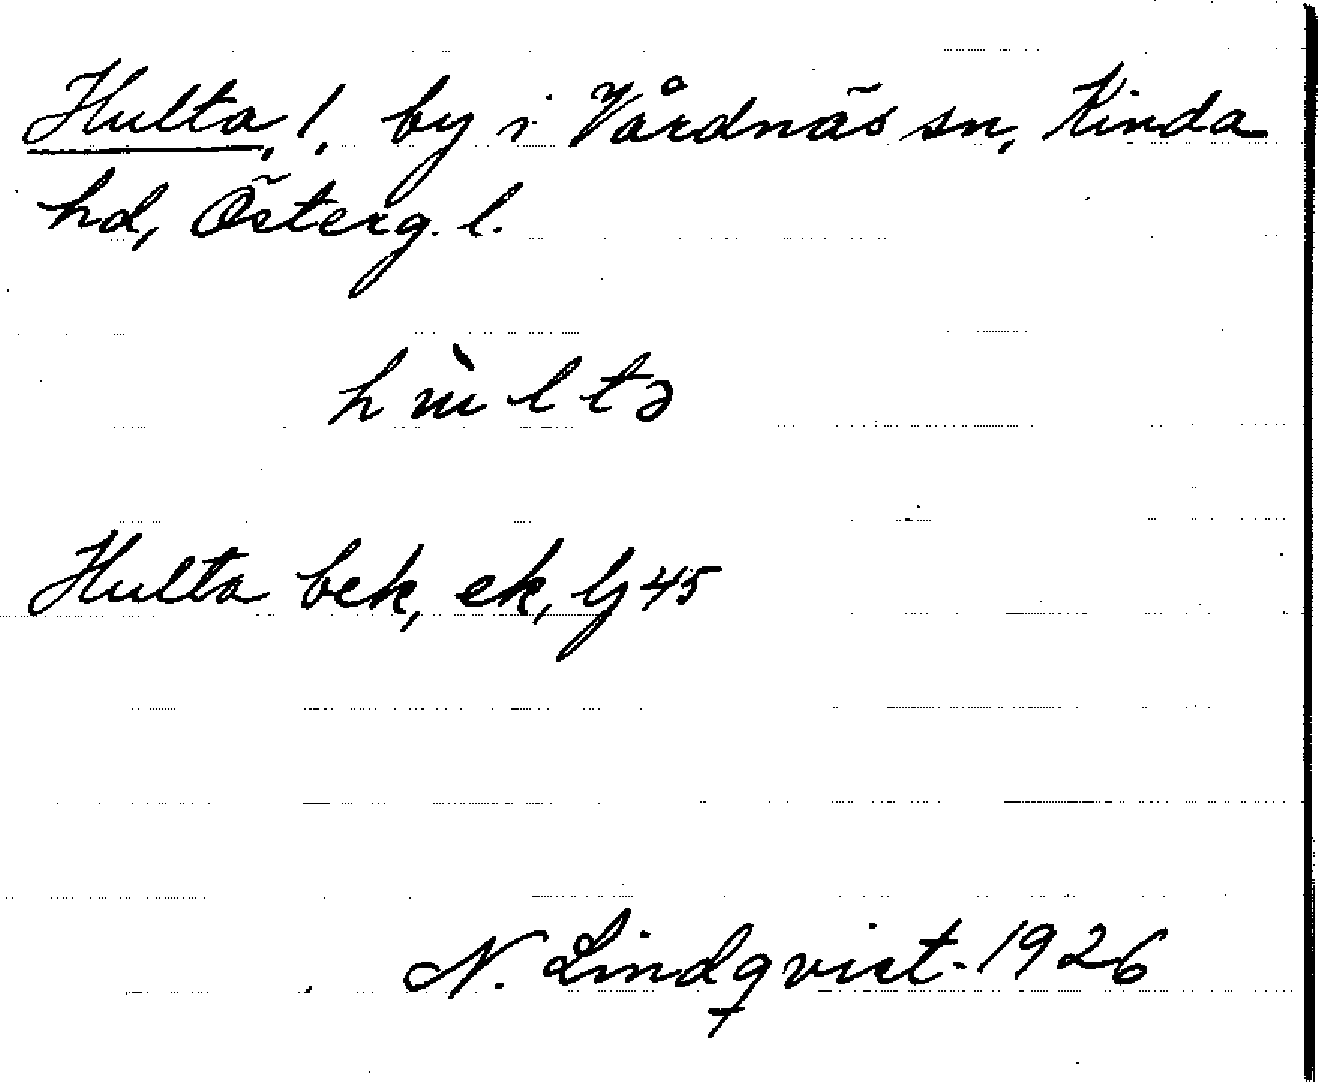 Hulta, !, by i Vårdnäs sn, Kinda
hd, Österg. l.
hùltə
Hulta bek, ek, lj 45
N. Lindqvist. 1926